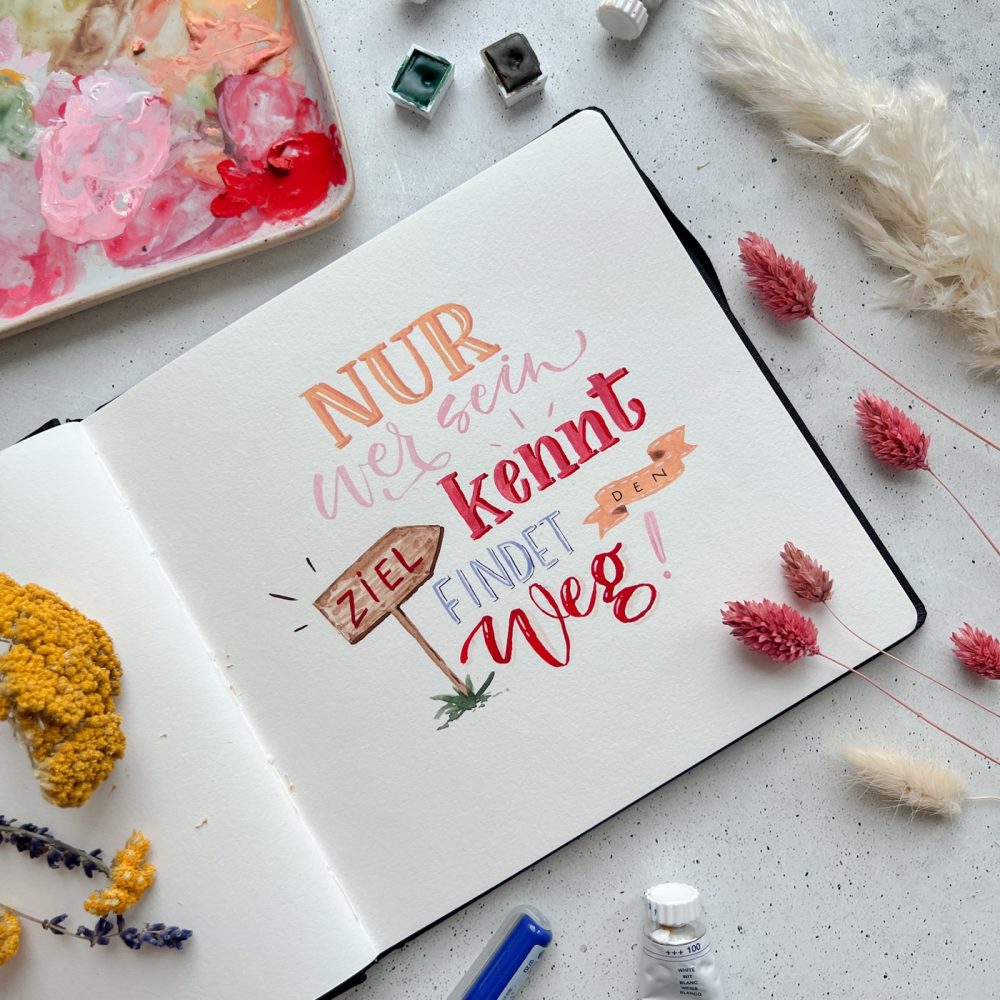 NUR
wer sein
kennt
ZIEL
FINDET
DEN
Weg!
+++ 100
WHITE
WIT
BLANC
WEISS
BLANCO